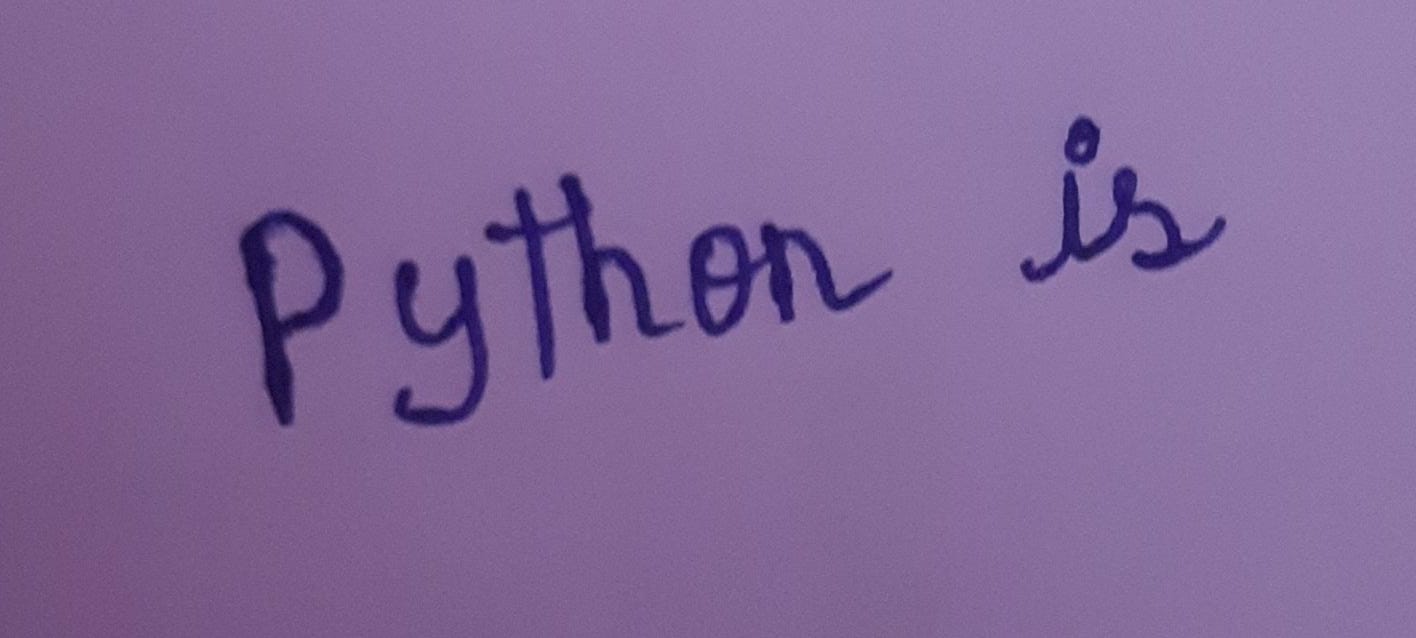 Python is